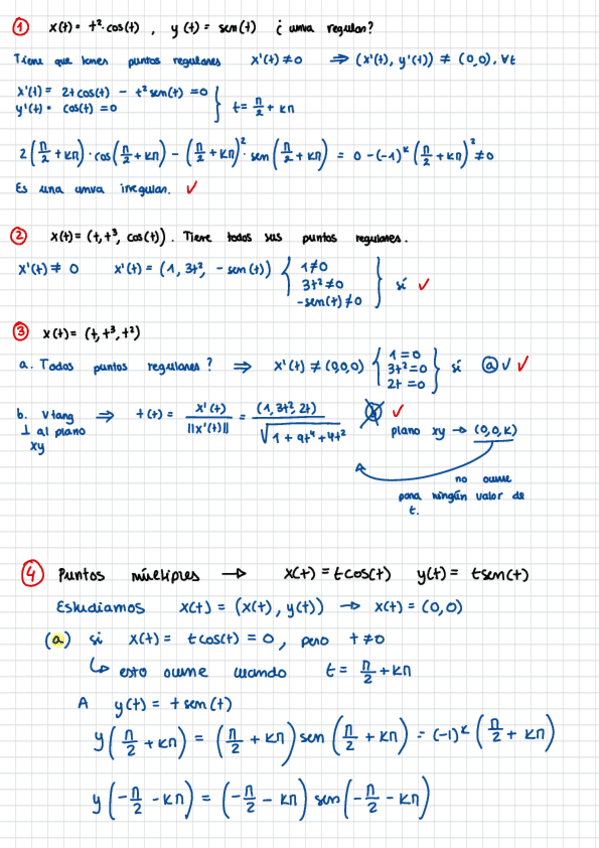 ① x(t) = t²·cos(t) , y(t) = sen(t) ¿ curva regular?
Tiene que tener puntos regulares x'(t) ≠ 0 ⇒ (x'(t), y'(t)) ≠ (0,0), ∀t
x'(t) = 2t cos(t) - t² sen(t) = 0
y'(t) = cos(t) = 0 } t = π/2 + kπ
2(π/2 + kπ)·cos(π/2 + kπ) - (π/2 + kπ)²·sen(π/2 + kπ) = 0 - (-1)^k (π/2 + kπ)² ≠ 0
Es una curva irregular. ✓
② x(t) = (t, t³, cos(t)). Tiene todos sus puntos regulares.
x'(t) ≠ 0 x'(t) = (1, 3t², -sen(t)) { 1 ≠ 0
3t² ≠ 0 } sí ✓
-sen(t) ≠ 0
③ x(t) = (t, t³, t²)
a. Todos puntos regulares? ⇒ x'(t) ≠ (0,0,0) { 1 = 0
3t² = 0 } sí ⓐ ✓ ✓
2t = 0
b. v tang ⇒ t(t) = x'(t) / ||x'(t)|| = (1, 3t², 2t) / √(1 + 9t⁴ + 4t²) ✓
⊥ al plano xy
plano xy → (0,0,k)
no ocurre
para ningún valor de
t.
④ Puntos múltiples → x(t) = t cos(t) y(t) = t sen(t)
Estudiamos x(t) = (x(t), y(t)) → x(t) = (0,0)
(a) si x(t) = t cos(t) = 0, pero t ≠ 0
↳ esto ocurre cuando t = π/2 + kπ
A y(t) = t sen(t)
y(π/2 + kπ) = (π/2 + kπ) sen(π/2 + kπ) = (-1)^k (π/2 + kπ)
y(-π/2 - kπ) = (-π/2 - kπ) sen(-π/2 - kπ)